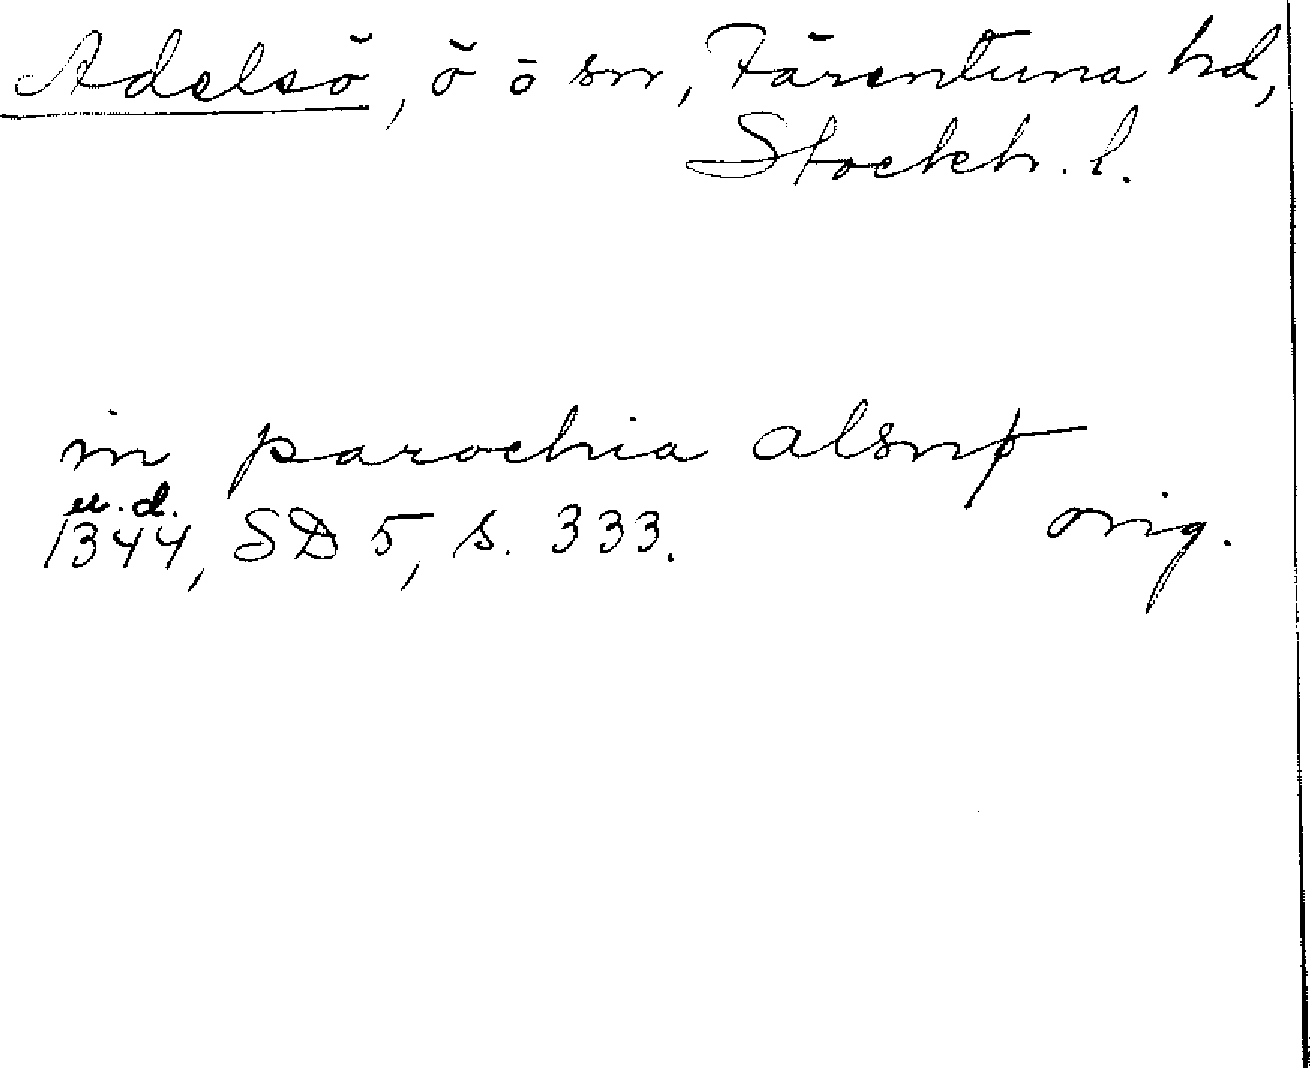 Adelsö, ö o sn, Färentuna hd,
Stockh. l.
in parochia alsnø
u.d.
1344, SD 5, s. 333.
orig.